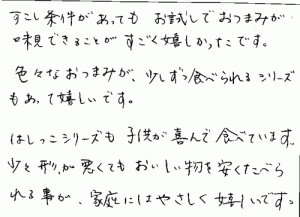 すこし条件があっても お試しでおつまみが
味見できることが すごく嬉しかったです。
色々なおつまみが、少しずつ食べられるシリーズ
もあって嬉しいです。
はしっこシリーズも 子供が喜んで食べています。
少々形が悪くても おいしい物を安くたべら
れる事が、家庭にはやさしく 嬉しいです。